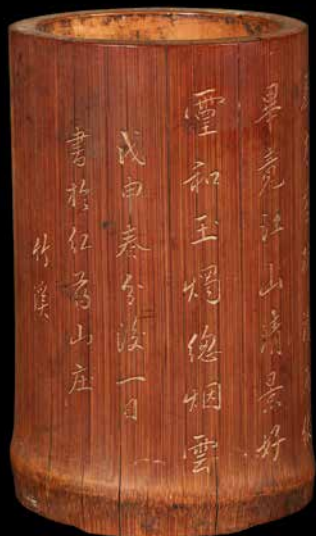 畢竟江山清景好
靈和玉燭緫烟雲
戊申春分後一日
書於紅葯山庄
竹溪